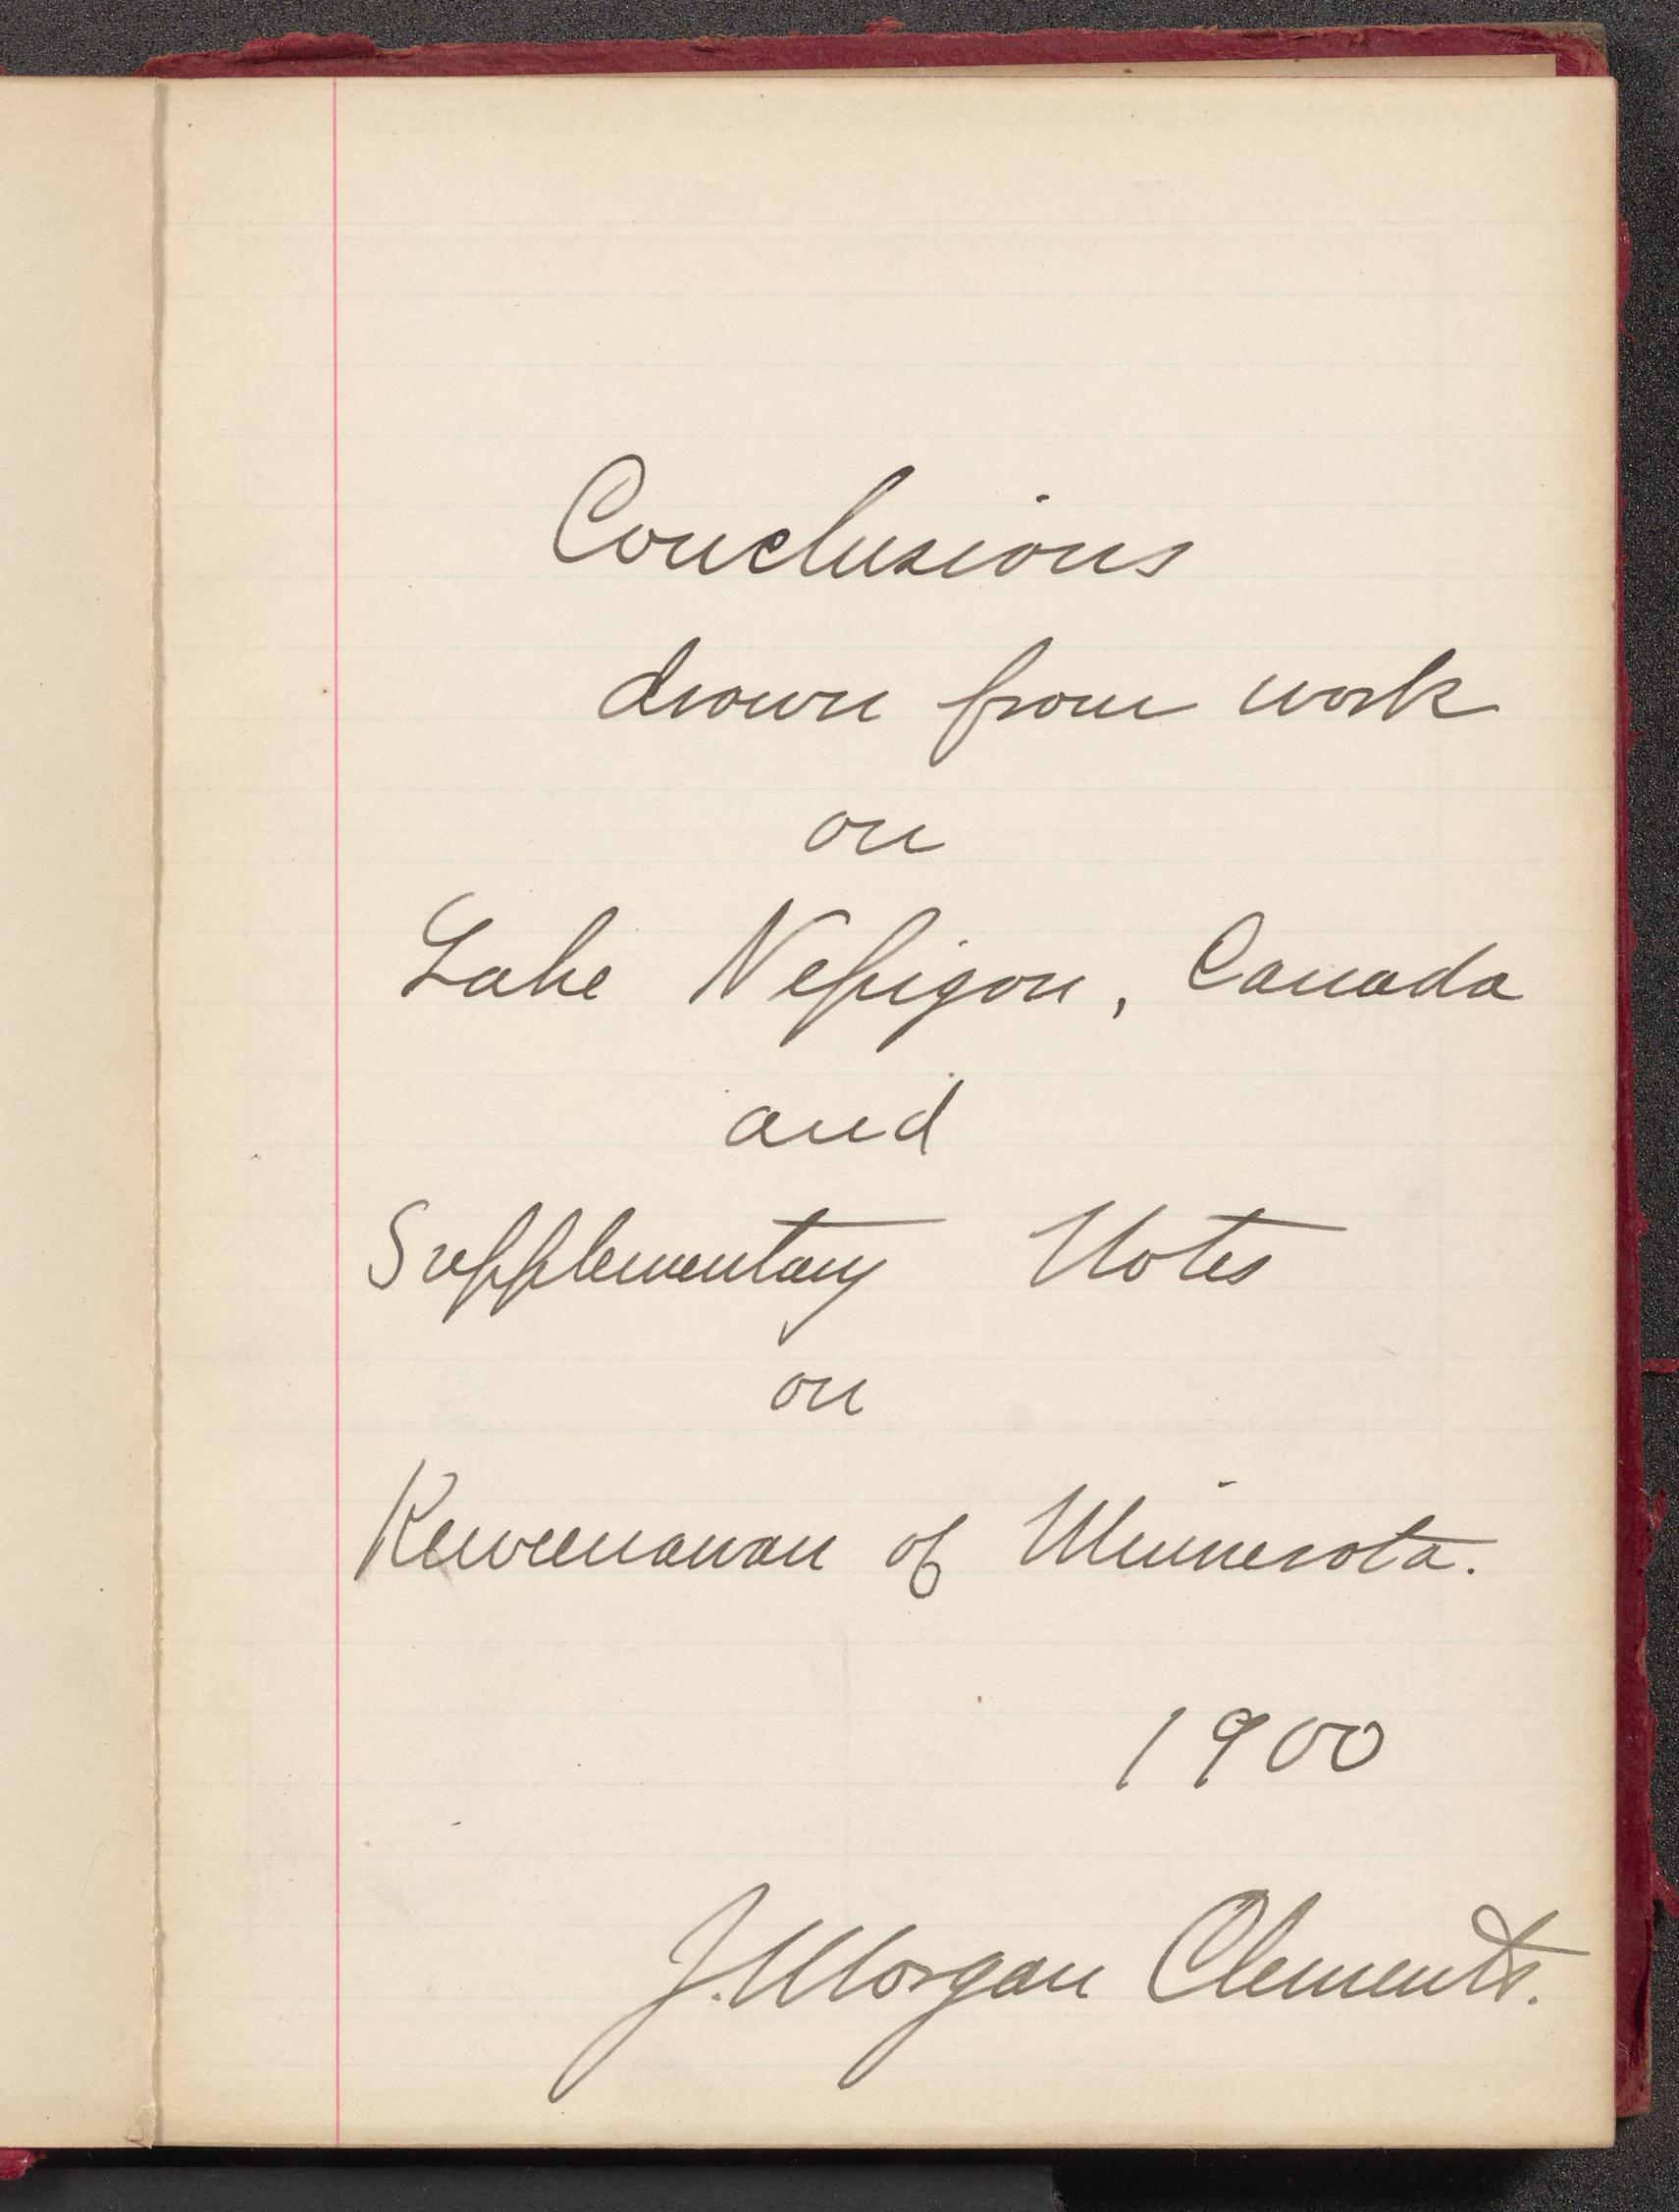 Conclusions
drawn from work
on
Lake Nepigon, Canada
and
Supplementary Notes
on
Keweenawan of Minnesota.
1900
J. Morgan Clements.